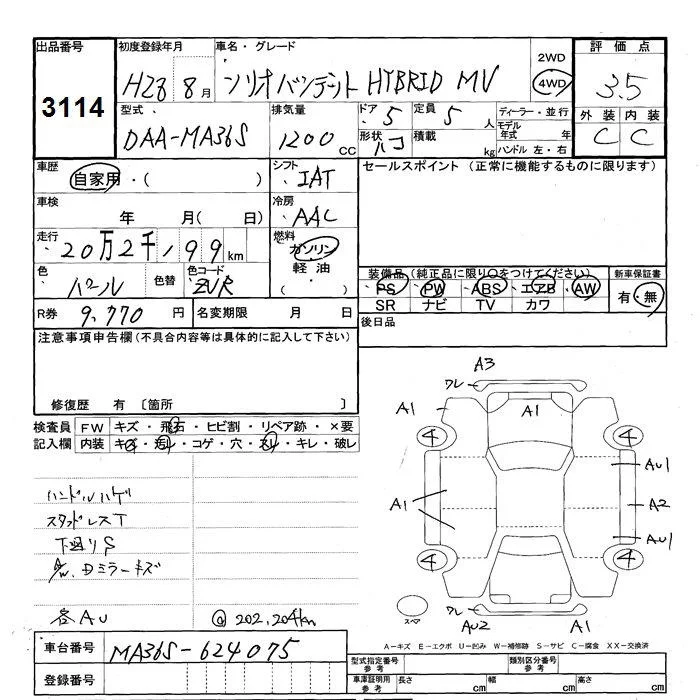 出品番号 初度登録年月 車名・グレード 評価点
3114 H28 8月 ソリオバンデット HYBRID MV 2WD 4WD 3.5
型式 排気量 ドア 5 定員 5人 ディーラー・並行 外装 内装
DAA-MA36S 1200cc 形状 ハコ 積載 kg モデル年式 年 ハンドル 左・右 C C
車歴 自家用・( ) シフト IAT セールスポイント (正常に機能するものに限ります)
車検 年 月( 日) 冷房 AAC
走行 20万2千199km 燃料 ガソリン 軽油 ( )
色 パール 色替 色コード ZVR 装備品 (純正品に限り○をつけてください) 新車保証書
PS PW ABS エアB AW 有・無
SR ナビ TV カワ
R券 9,770円 名変期限 月 日 後日品
注意事項申告欄 (不具合内容等は具体的に記入して下さい)
修復歴 有 〔箇所 〕
検査員記入欄 FW キズ・飛石・ヒビ割・リペア跡・×要
内装 キズ・汚レ・コゲ・穴・スレ・キレ・破レ
ハンドルハゲ
スタッドレスT
下廻りS
A/W、Dミラーキズ
各AU @202,204km
A3
ワレ
A1 A1
4 4
AU1
A1 A2
AU1
4 4
スペア ワレ
AU2 A1
A-キズ E-エクボ U-凹み W-補修跡 S-サビ C-腐食 XX-交換済
車台番号 MA36S-624075
登録番号
型式指定番号 参考 類別区分番号 参考
車庫証明用 参考 長さ cm 幅 cm 高さ cm